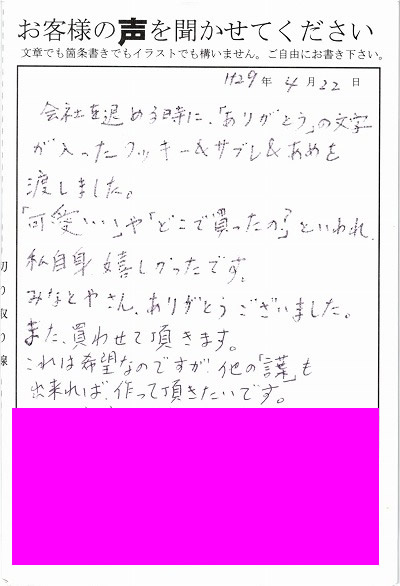 お客様の声を聞かせてください
文章でも箇条書きでもイラストでも構いません。ご自由にお書き下さい。
H29年 4月22日
会社を退める時に、「ありがとう」の文字
が入ったクッキー&サブレ&あめを
渡しました。
「可愛いい」や「どこで買ったの?」といわれ、
私自身、嬉しかったです。
みなとやさん、ありがとうございました。
また、買わせて頂きます。
これは希望なのですが、他の「葉」も
出来れば、作って頂きたいです。
切り取り線